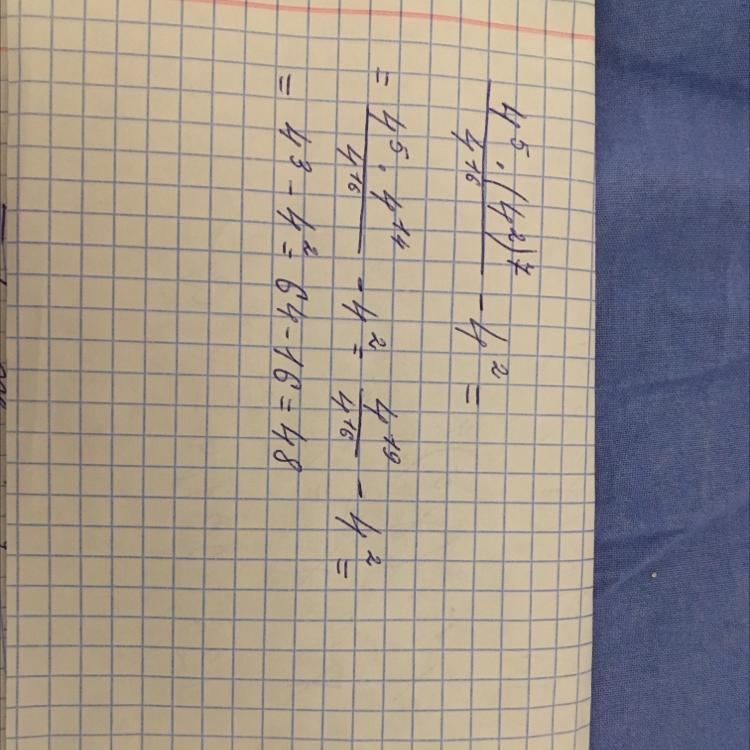 4⁵·(4²)⁷/4¹⁶ - 4² =
= 4⁵·4¹⁴/4¹⁶ - 4² = 4¹⁹/4¹⁶ - 4² =
= 4³ - 4² = 64 - 16 = 48